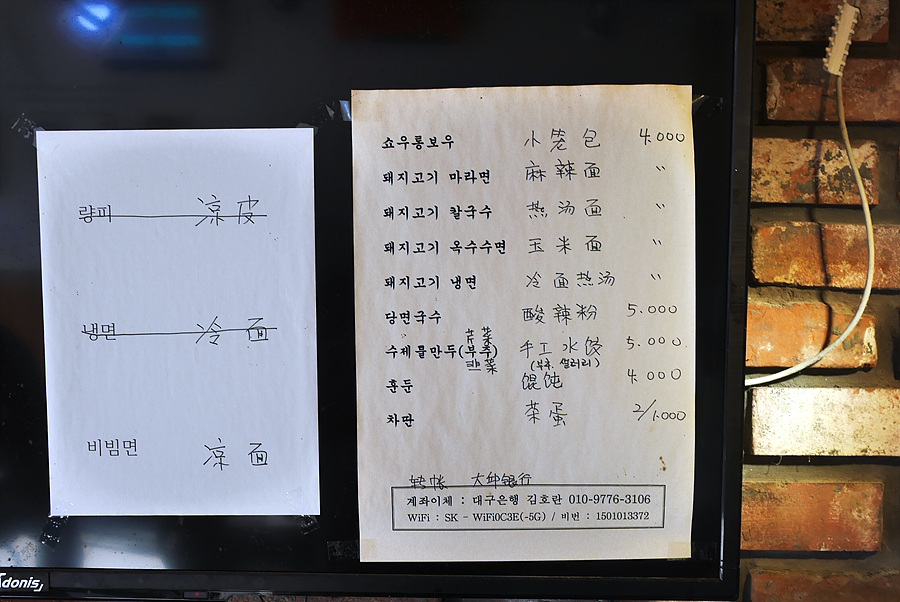 량피 凉皮
냉면 冷面
비빔면 凉面
쇼우롱보우 小笼包 4.000
돼지고기 마라면 麻辣面 〃
돼지고기 칼국수 热汤面 〃
돼지고기 옥수수면 玉米面 〃
돼지고기 냉면 冷面热汤 〃
당면국수 酸辣粉 5.000
芹菜
수제물만두(부추) 手工水饺 5.000
韭菜 (부추. 샐러리)
훈둔 馄饨 4.000
차딴 茶蛋 2/1.000
转帐 大邱银行
계좌이체 : 대구은행 김호란 010-9776-3106
WiFi : SK - WiFi0C3E(-5G) / 비번 : 1501013372